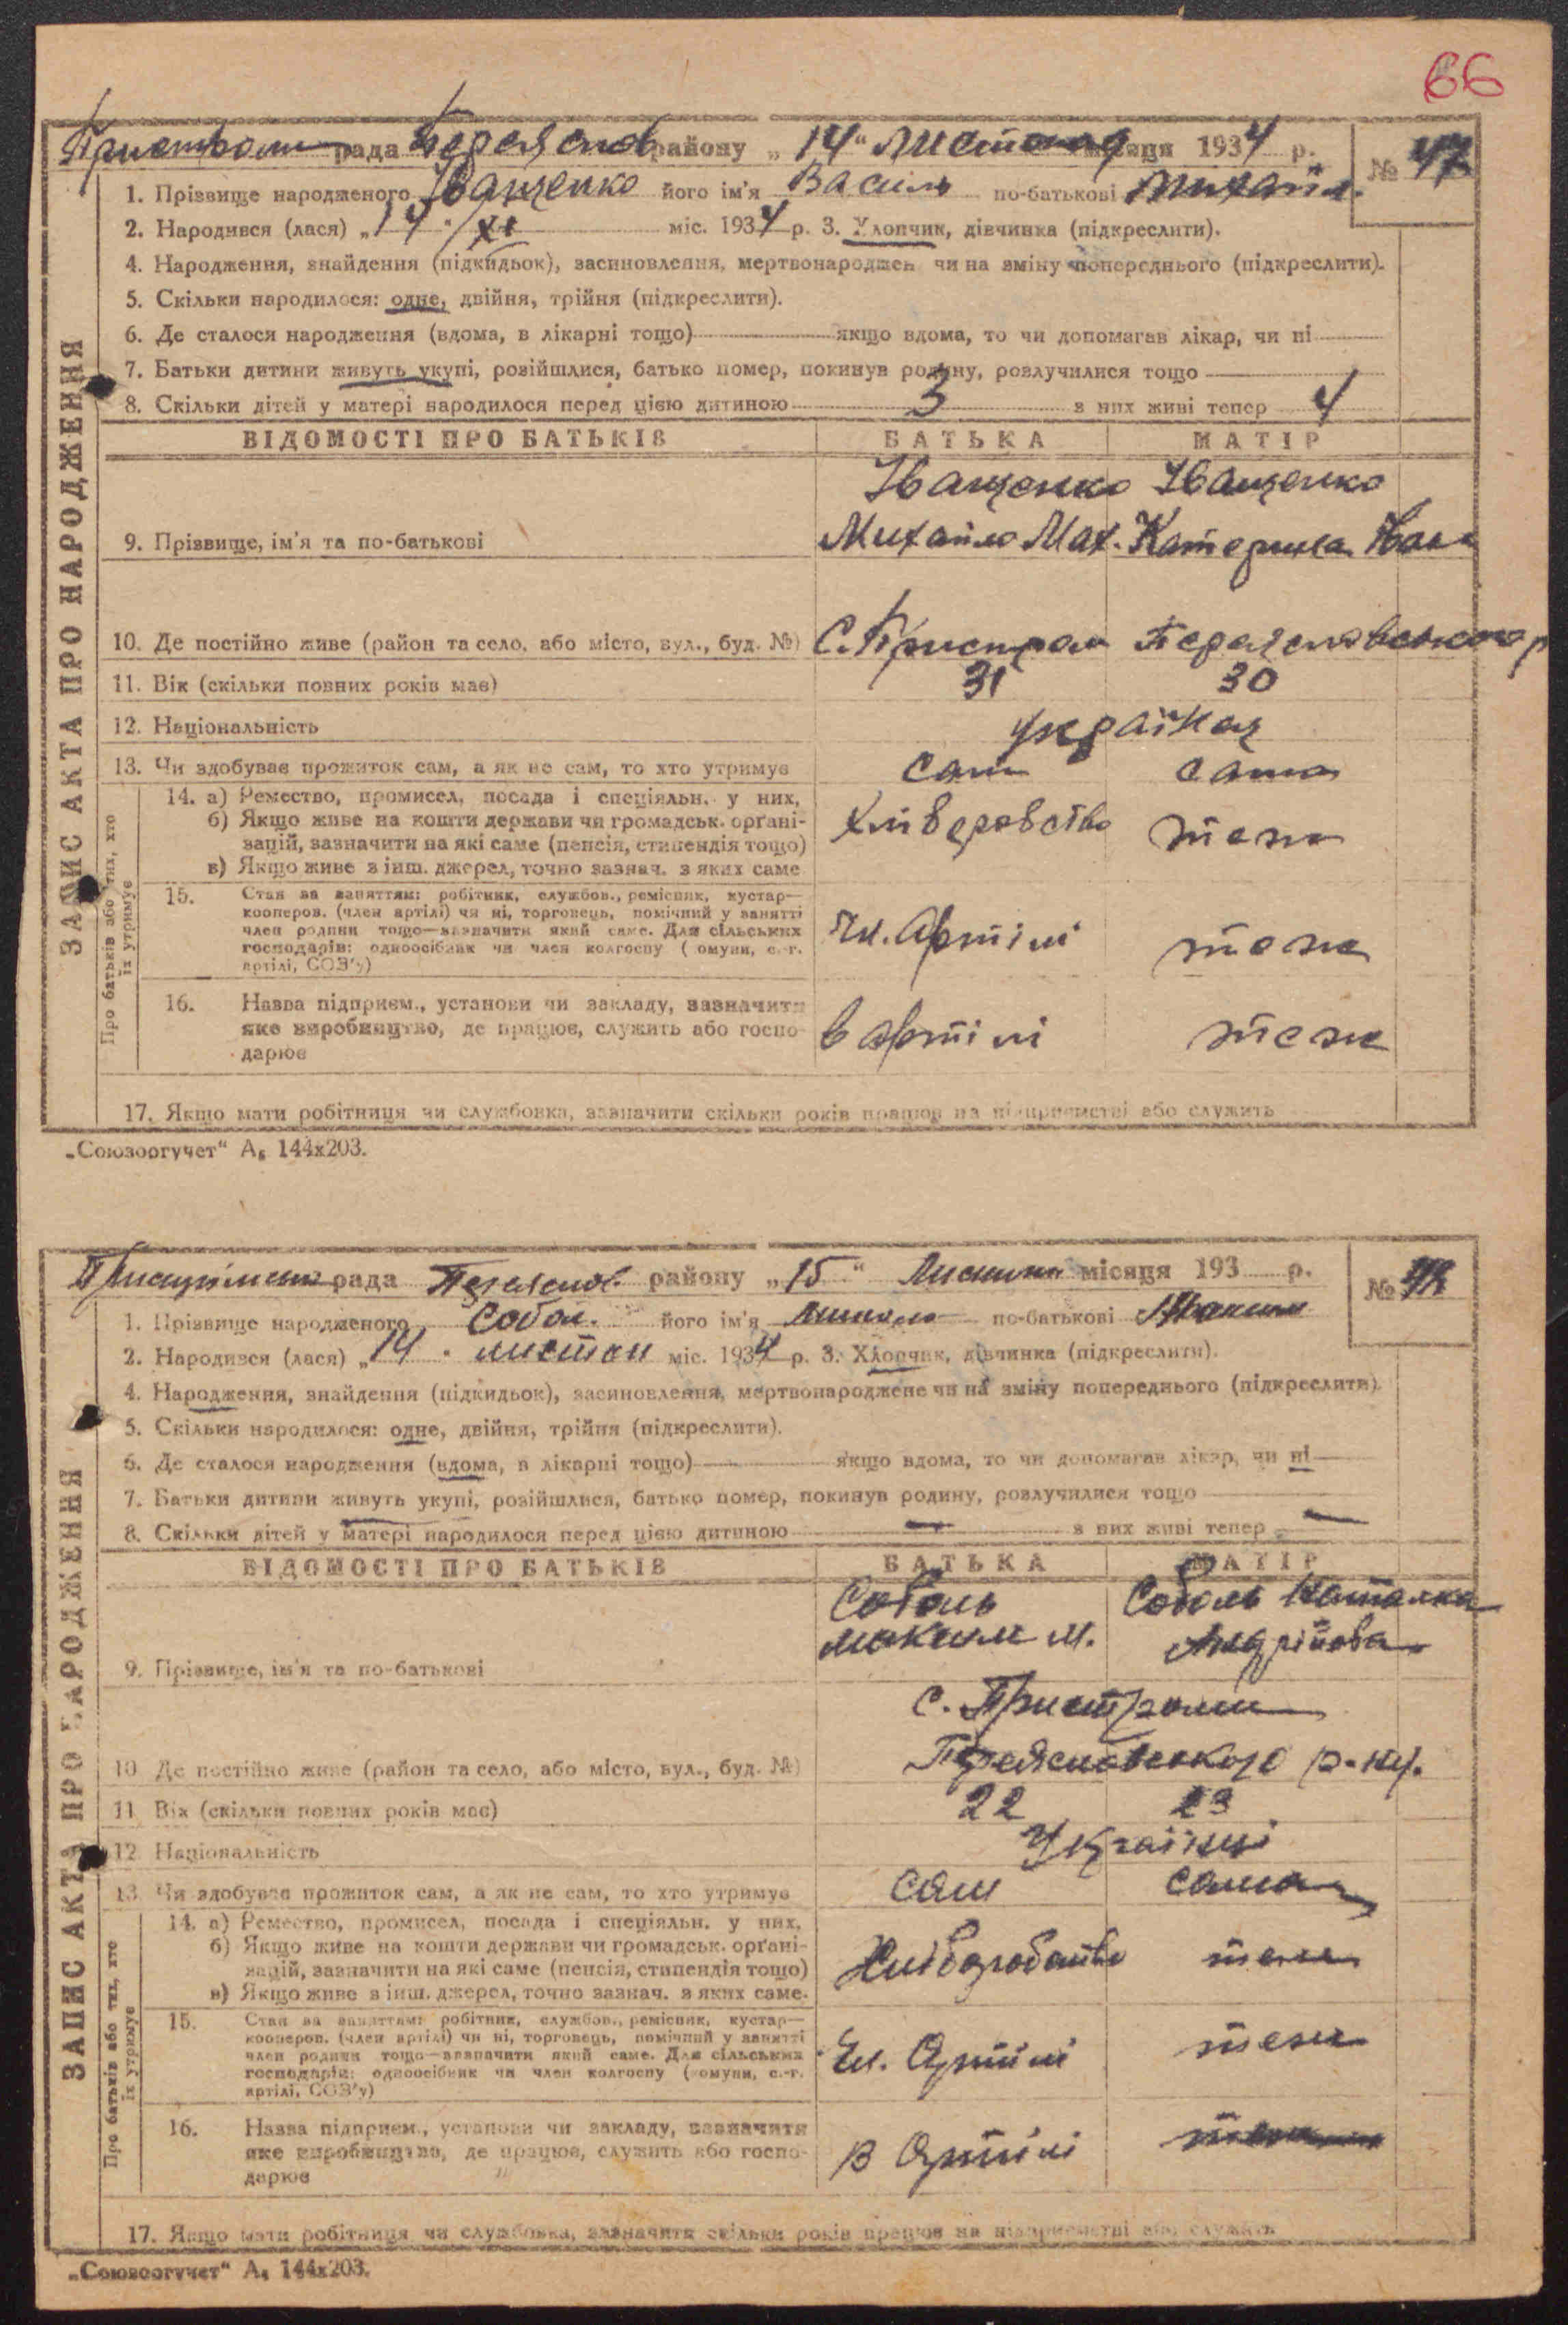 66
Пристром рада Переяслов району „14“ листопад місяця 1934 р. № 47
1. Прізвище народженого Іващенко його ім'я Василь по-батькові Михайл.
2. Народився (лася) „14“ XI міс. 1934 р. 3. Хлопчик, дівчинка (підкреслити).
4. Народження, знайдення (підкидьок), засиновлення, мертвонароджен чи на зміну попереднього (підкреслити).
5. Скільки народилося: одне, двійня, трійня (підкреслити).
6. Де сталося народження (вдома, в лікарні тощо) якщо вдома, то чи допомагав лікар, чи ні
7. Батьки дитини живуть укупі, розійшлися, батько помер, покинув родину, розлучилися тощо
8. Скільки дітей у матері народилося перед цією дитиною 3 з них живі тепер 4
ЗАПИС АКТА ПРО НАРОДЖЕННЯ
ВІДОМОСТІ ПРО БАТЬКІВ БАТЬКА МАТІР
Іващенко Іващенко
9. Прізвище, ім'я та по-батькові Михайло Мах. Катерина Іван
10. Де постійно живе (район та село, або місто, вул., буд. №) С. Пристром Переяславського р
11. Вік (скільки повних років має) 31 30
12. Національність українці
13. Чи здобуває прожиток сам, а як не сам, то хто утримує сам сама
Про батьків або тих, хто їх утримує
14. а) Ремество, промисел, посада і спеціяльн. у них,
б) Якщо живе на кошти держави чи громадськ. орґані- хліборобство теж
зацій, зазначити на які саме (пенсія, стипендія тощо)
в) Якщо живе з інш. джерел, точно зазнач. з яких саме
15. Стан за заняттям: робітник, службов., ремісник, кустар—
кооперов. (член артілі) чи ні, торговець, помічний у занятті
член родини тощо—зазначити який саме. Для сільських Чл. Артілі теж
господарів: одноосібник чи член колгоспу (комуни, с.-г.
артілі, СОЗ'у)
16. Назва підприєм., установи чи закладу, зазначити
яке виробництво, де працює, служить або госпо- в артілі теж
дарює
17. Якщо мати робітниця чи службовка, зазначити скільки років працює на підприємстві або служить
„Союзоргучет“ А₅ 144х203.
рада Переяслов. району „15“ місяця 193 р. № 48
1. Прізвище народженого Собол. його ім'я по-батькові Максим
2. Народився (лася) „14“ листоп міс. 1934 р. 3. Хлопчик, дівчинка (підкреслити).
4. Народження, знайдення (підкидьок), засиновлення, мертвонароджене чи на зміну попереднього (підкреслити)
5. Скільки народилося: одне, двійня, трійня (підкреслити).
6. Де сталося народження (вдома, в лікарні тощо) якщо вдома, то чи допомагав лікар, чи ні
7. Батьки дитини живуть укупі, розійшлися, батько помер, покинув родину, розлучилися тощо
8. Скільки дітей у матері народилося перед цією дитиною — з них живі тепер —
ЗАПИС АКТА ПРО НАРОДЖЕННЯ
ВІДОМОСТІ ПРО БАТЬКІВ БАТЬКА МАТІР
Соболь Соболь Наталка
Максим М. Андрійова
9. Прізвище, ім'я та по-батькові
с. Пристроми
10. Де постійно живе (район та село, або місто, вул., буд. №) Переяславського р-ну.
11. Вік (скільки повних років має) 22 23
12. Національність Українці
13. Чи здобуває прожиток сам, а як не сам, то хто утримує сам сама
Про батьків або тих, хто їх утримує
14. а) Ремество, промисел, посада і спеціяльн. у них,
б) Якщо живе на кошти держави чи громадськ. орґані- Хліборобство теж
зацій, зазначити на які саме (пенсія, стипендія тощо)
в) Якщо живе з інш. джерел, точно зазнач. з яких саме.
15. Стан за заняттям: робітник, службов., ремісник, кустар—
кооперов. (член артілі) чи ні, торговець, помічний у занятті
член родини тощо—зазначити який саме. Для сільських Чл. Артілі теж
господарів: одноосібник чи член колгоспу (комуни, с.-г.
артілі, СОЗ'у)
16. Назва підприєм., установи чи закладу, зазначити
яке виробництво, де працює, служить або госпо- в Артілі теж
дарює
17. Якщо мати робітниця чи службовка, зазначити скільки років працює на підприємстві або служить
„Союзоргучет“ А₅ 144х203.